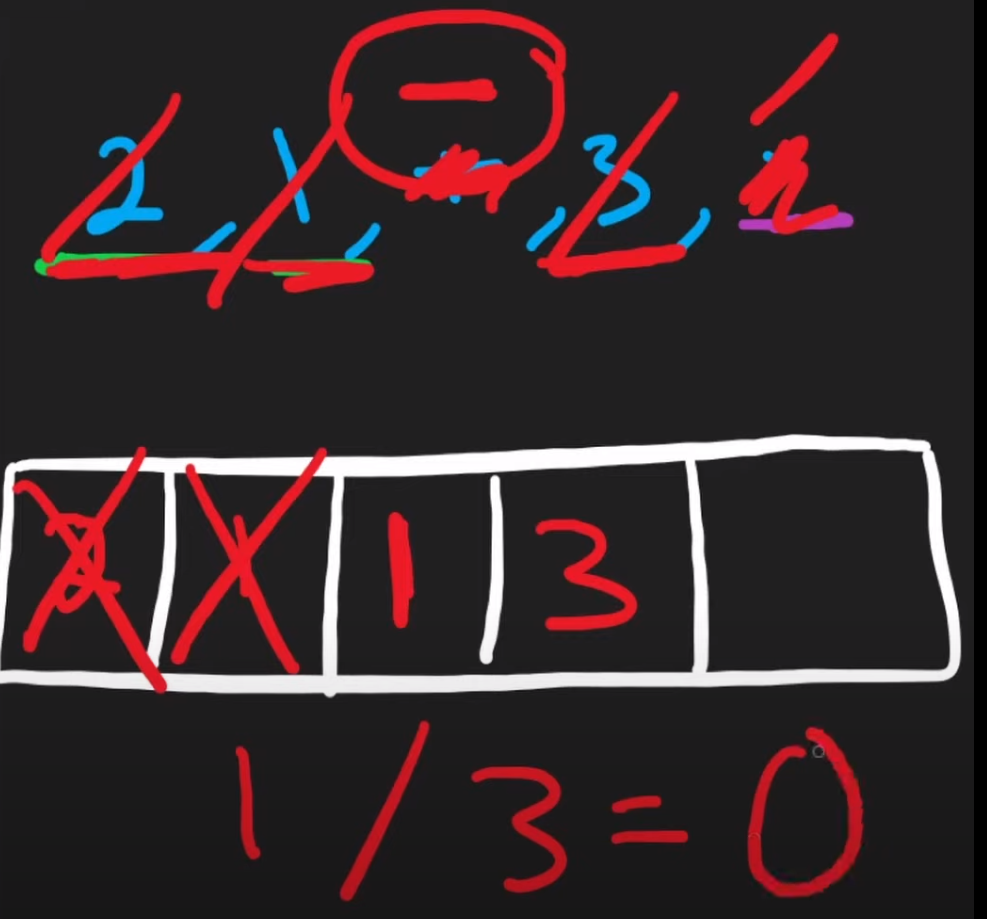 2, 1, −, 3,
2 1 1 3
1 / 3 = 0